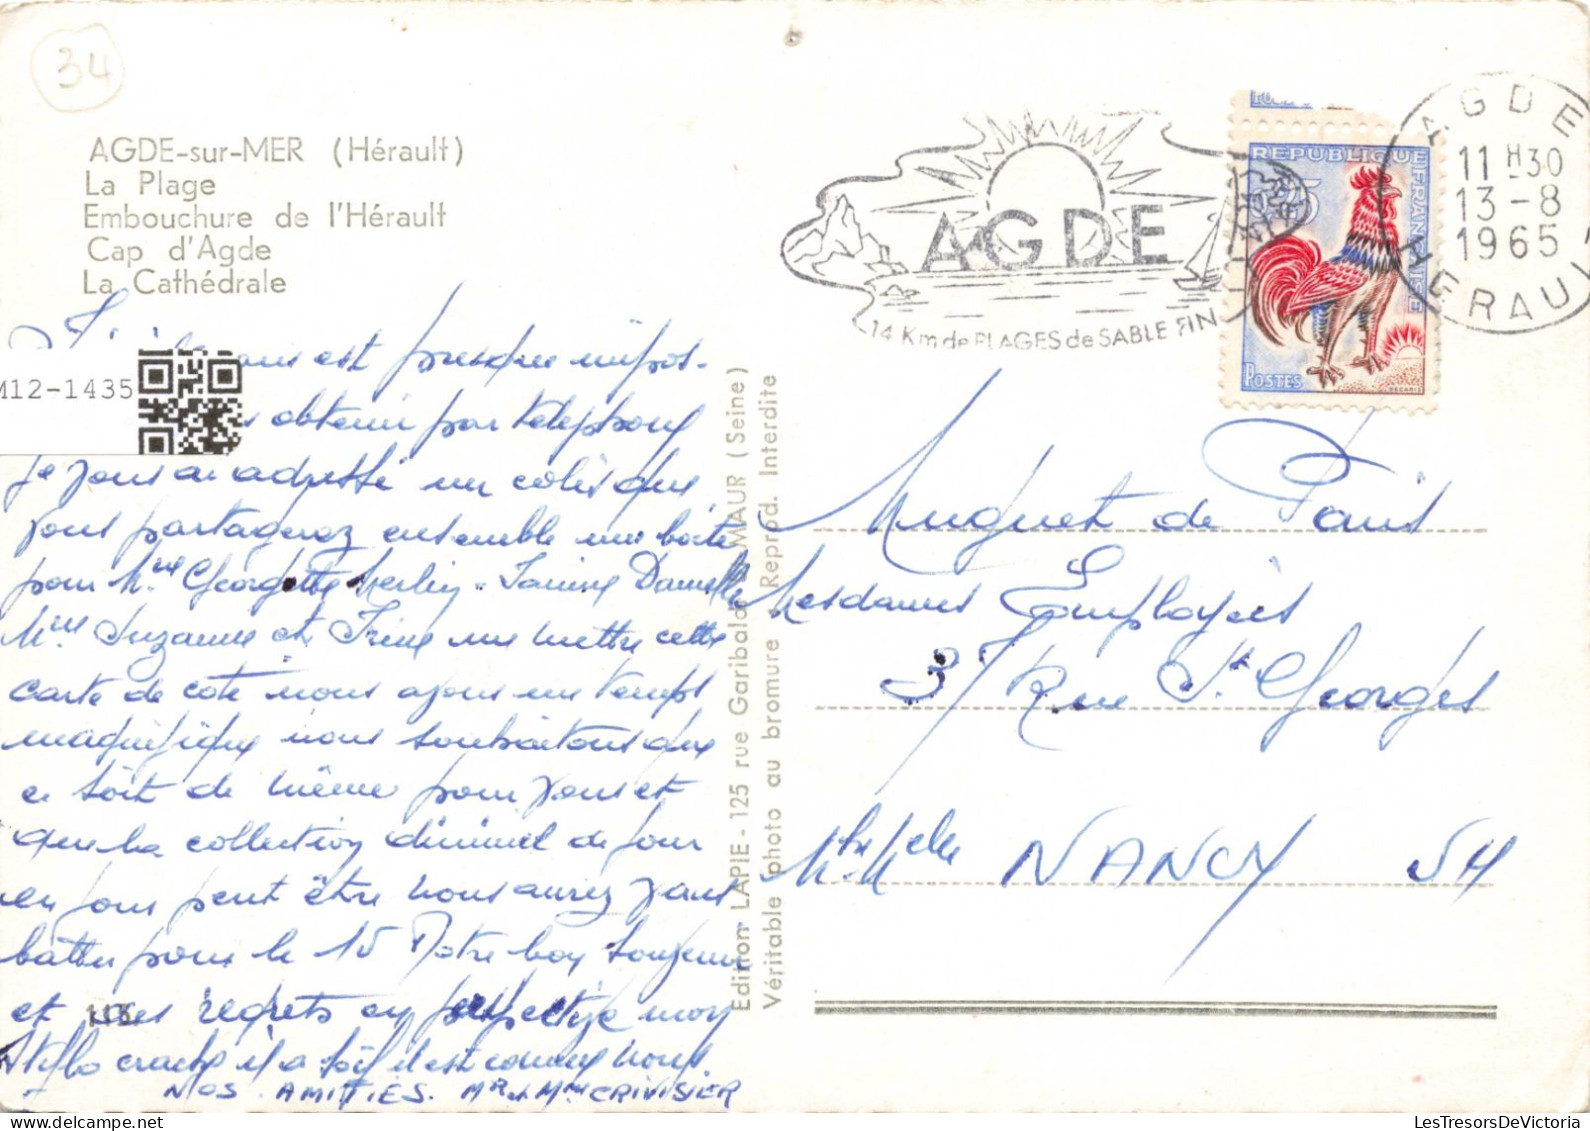 34
AGDE-sur-MER (Hérault)
La Plage
Embouchure de l'Hérault
Cap d'Agde
La Cathédrale
M12-1435
est presque impos-
obtenir par telephone
je vous ai adressé un colis que
vous partagerez ensemble une boite
pour Mme Georgette Merlin - Janine Danielle
Mme Suzanne et Irène me mettre cette
carte de coté nous avons un temps
magnifique nous souhaitons que
ce soit de même pour vous et
que la collection diminue de jour
en jour peut être nous aurez vous
battu pour le 15 Notre bon souvenir
et mes regrets en perspective mon
Stylo crache il a soif il est comme nous.
NOS AMITIES. Mr et Mme CRIVISIER
116
Edition LAPIE - 125 rue Garibaldi MAUR (Seine)
Véritable photo au bromure - Reprod. Interdite
AGDE
14 Km de PLAGES de SABLE FIN
REPUBLIQUE FRANÇAISE
0,25
POSTES
DECARIS
AGDE
11 H 30
13 - 8
1965
HERAULT
Muguet de Paris
Mesdames Employées
37 Rue St Georges
Mthe Mlle NANCY 54
LesTresorsDeVictoria